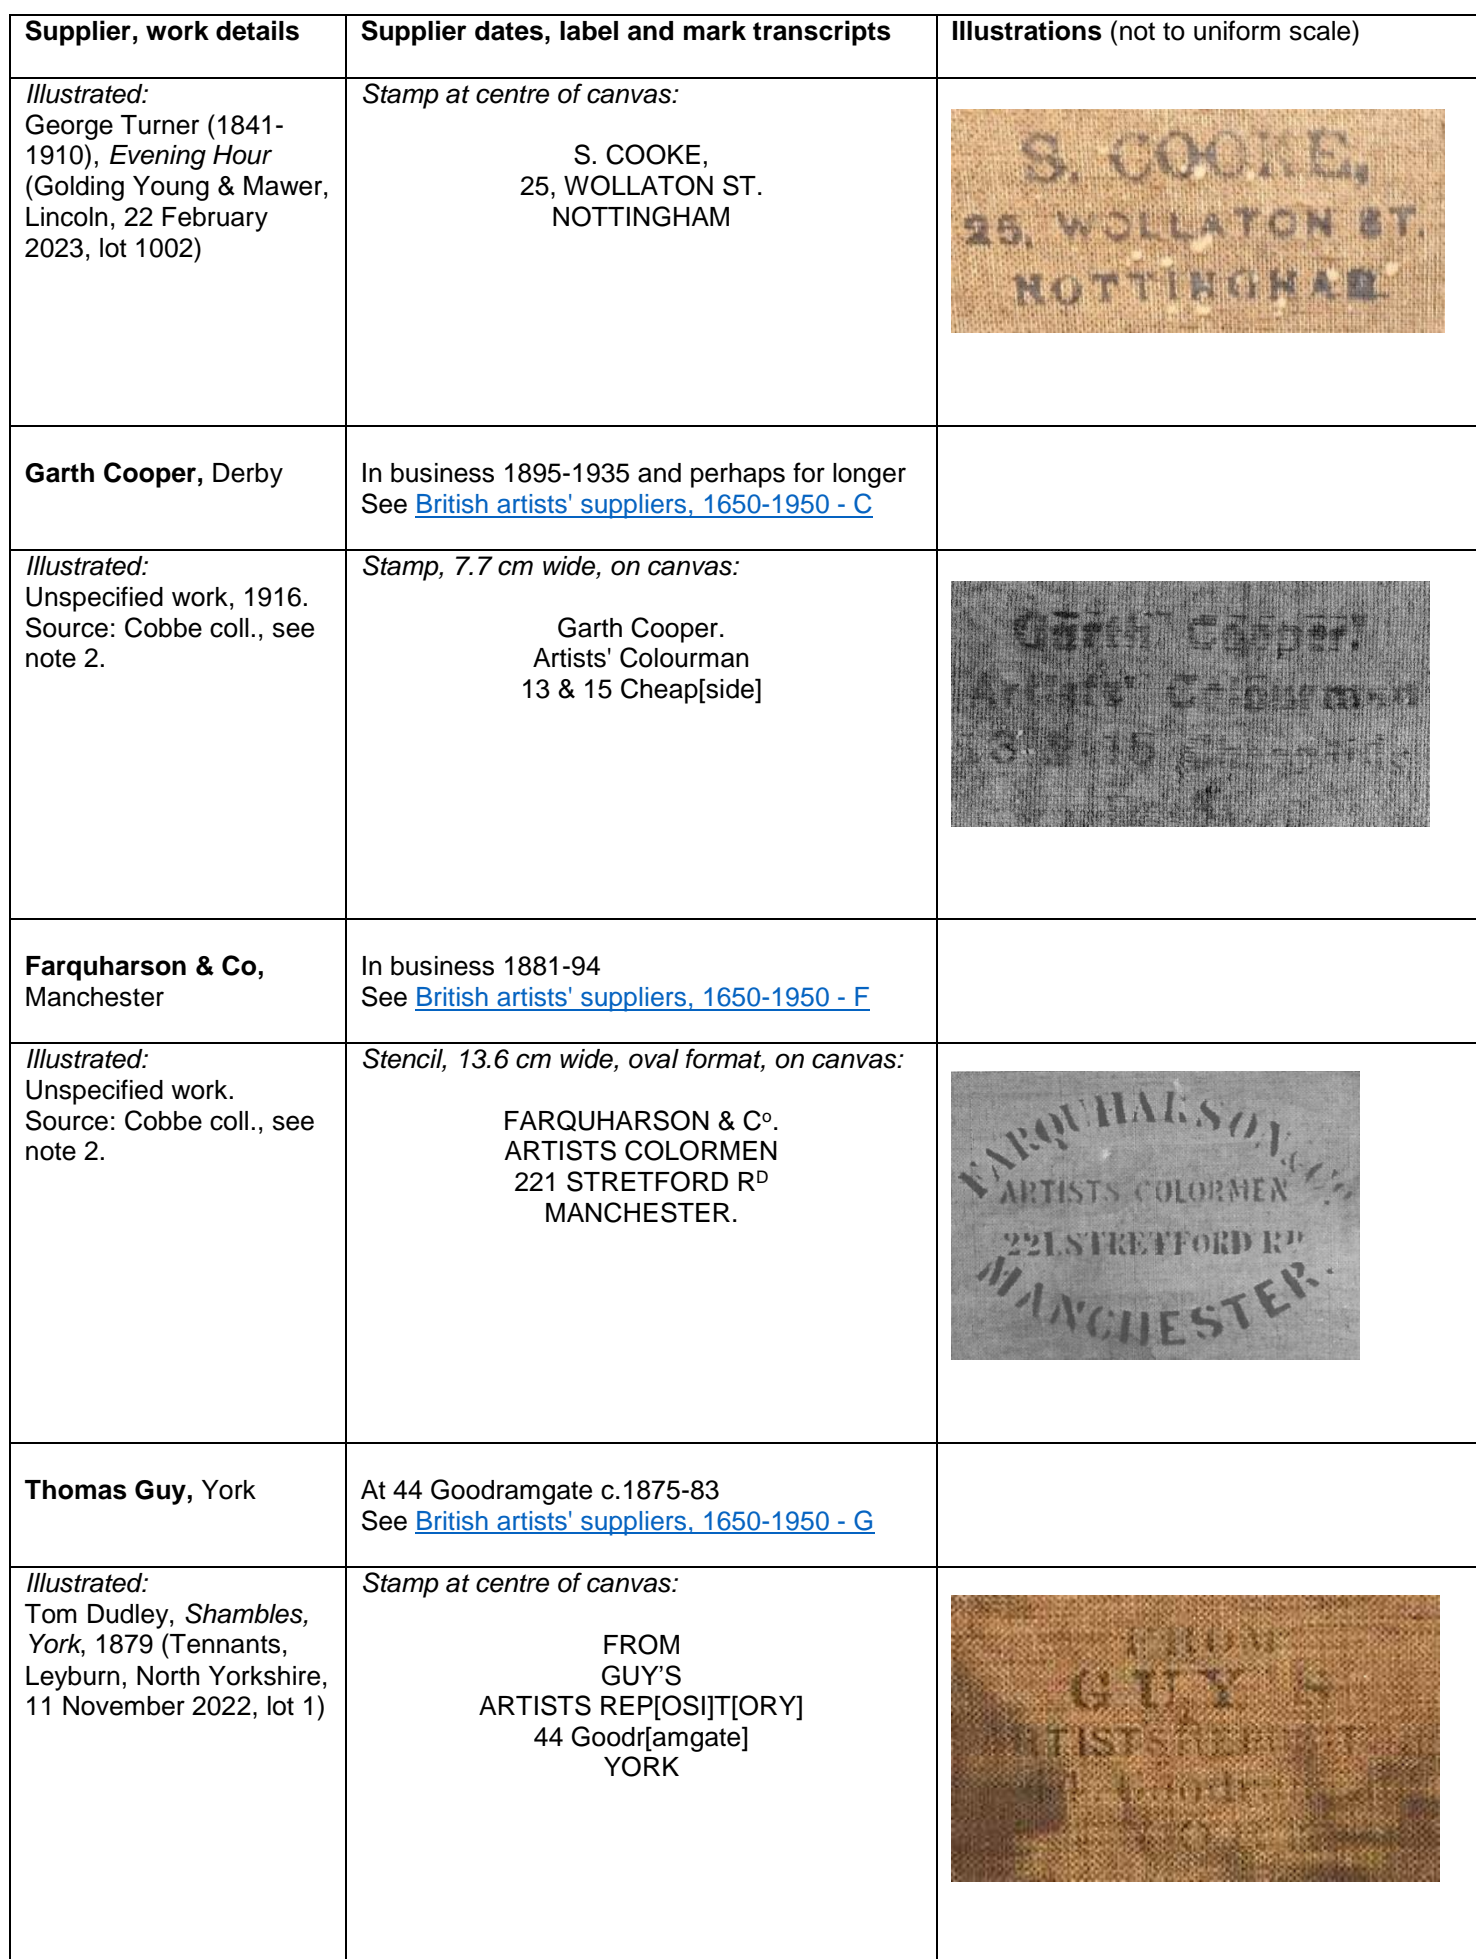 Supplier, work details
Supplier dates, label and mark transcripts
Illustrations (not to uniform scale)
Illustrated:
George Turner (1841-
1910), Evening Hour
(Golding Young & Mawer,
Lincoln, 22 February
2023, lot 1002)
Stamp at centre of canvas:
S. COOKE,
25, WOLLATON ST.
NOTTINGHAM
S. COOKE,
25, WOLLATON ST.
NOTTINGHAM
Garth Cooper, Derby
In business 1895-1935 and perhaps for longer
See British artists' suppliers, 1650-1950 - C
Illustrated:
Unspecified work, 1916.
Source: Cobbe coll., see
note 2.
Stamp, 7.7 cm wide, on canvas:
Garth Cooper.
Artists' Colourman
13 & 15 Cheap[side]
Garth Cooper.
Artists' Colourman
Farquharson & Co,
Manchester
In business 1881-94
See British artists' suppliers, 1650-1950 - F
Illustrated:
Unspecified work.
Source: Cobbe coll., see
note 2.
Stencil, 13.6 cm wide, oval format, on canvas:
FARQUHARSON & Cº.
ARTISTS COLORMEN
221 STRETFORD Rᴰ
MANCHESTER.
FARQUHARSON & Cº.
ARTISTS COLORMEN
221. STRETFORD Rᴰ
MANCHESTER.
Thomas Guy, York
At 44 Goodramgate c.1875-83
See British artists' suppliers, 1650-1950 - G
Illustrated:
Tom Dudley, Shambles,
York, 1879 (Tennants,
Leyburn, North Yorkshire,
11 November 2022, lot 1)
Stamp at centre of canvas:
FROM
GUY’S
ARTISTS REP[OSI]T[ORY]
44 Goodr[amgate]
YORK
FROM
GUY'S